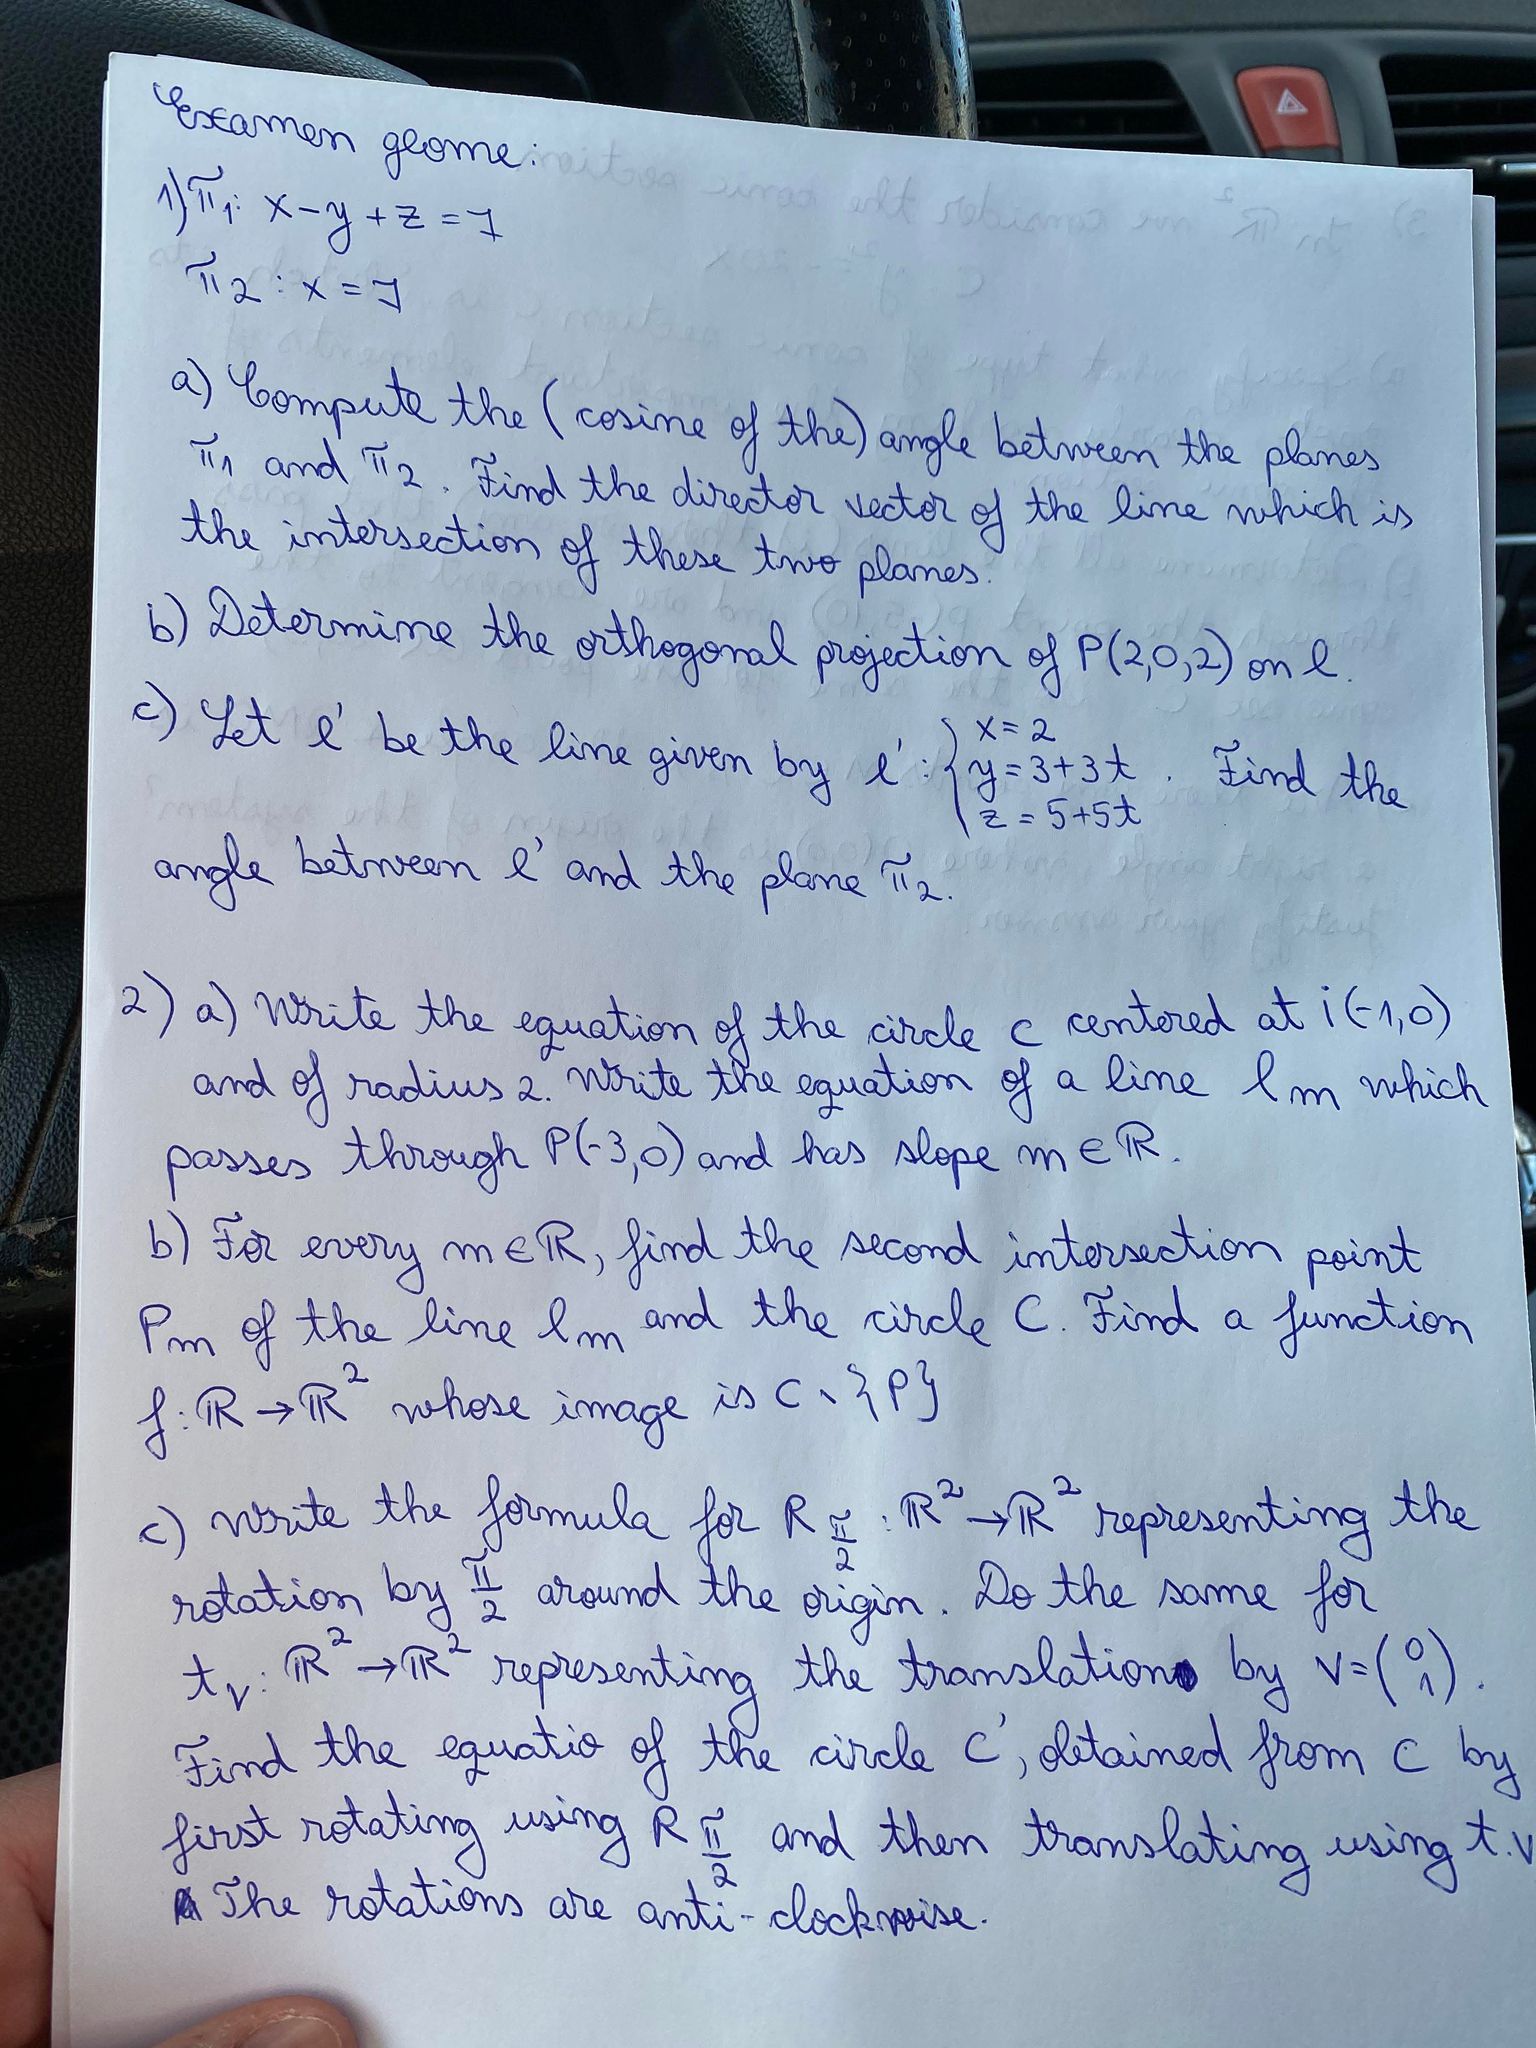 Examen geome:
1) π1: x-y+z=7
π2: x=7
a) Compute the (cosine of the) angle between the planes
π1 and π2. Find the director vector of the line which is
the intersection of these two planes.
b) Determine the orthogonal projection of P(2,0,2) on l.
c) Let l' be the line given by l': { x=2
y=3+3t . Find the
z=5+5t
angle between l' and the plane π2.
2) a) Write the equation of the circle c centered at i(-1,0)
and of radius 2. Write the equation of a line lm which
passes through P(-3,0) and has slope m∈ℝ.
b) For every m∈ℝ, find the second intersection point
Pm of the line lm and the circle C. Find a function
f: ℝ→ℝ² whose image is C \ {P}
c) Write the formula for R π/2 : ℝ²→ℝ² representing the
rotation by π/2 around the origin. Do the same for
tv: ℝ²→ℝ² representing the translation by v=(0 1).
Find the equatio of the circle C', obtained from C by
first rotating using R π/2 and then translating using t.v
The rotations are anti-clockwise.